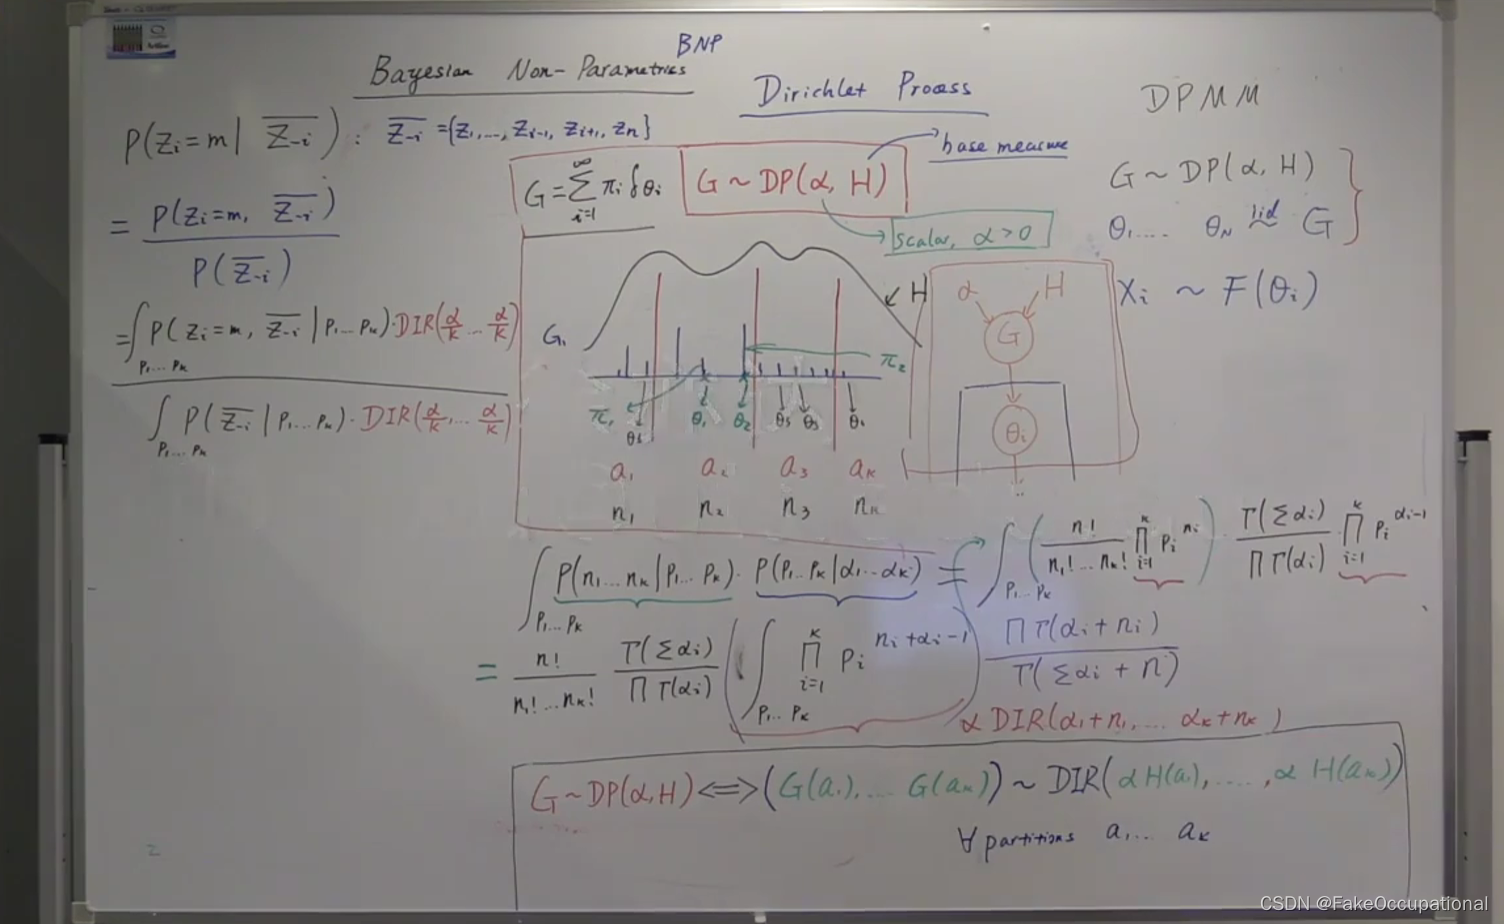 Bayesian Non-Parametrics BNP
Dirichlet Process
DPMM
P(Zi=m | Z-i) : Z-i = {Z1,..., Zi-1, Zi+1, Zn}
= P(Zi=m, Z-i)
P(Z-i)
=∫P1...Pk P(Zi=m, Z-i | P1...Pk)·DIR(α/k ... α/k)
∫P1...Pk P(Z-i | P1...Pk)·DIR(α/k, ... α/k)
G=∑i=1∞ πi δθi
G ~ DP(α, H)
base measure
scalar, α>0
G ~ DP(α, H)
θ1.... θN iid~ G
Xi ~ F(θi)
H
G1
π2
π1 θ1 θ2 θ3
a1 a2 a3 ak
n1 n2 n3 nk
α H
G
θi
∫P1...Pk P(n1...nk|P1...Pk)· P(P1...Pk|α1...αk) = ∫P1...Pk (n!/n1!...nk! ∏i=1k Pi^ni) · Γ(∑αi)/∏Γ(αi) ∏i=1k Pi^αi-1
= n!/n1!...nk! Γ(∑αi)/∏Γ(αi) (∫P1...Pk ∏i=1k Pi^ni+αi-1) ∏Γ(αi+ni)/Γ(∑αi+n)
α DIR(α1+n1,... αk+nk)
G~DP(α,H) <=> (G(a1),... G(ak)) ~ DIR(αH(a1),....,α H(ak))
∀ partitions a1... ak
CSDN @FakeOccupational